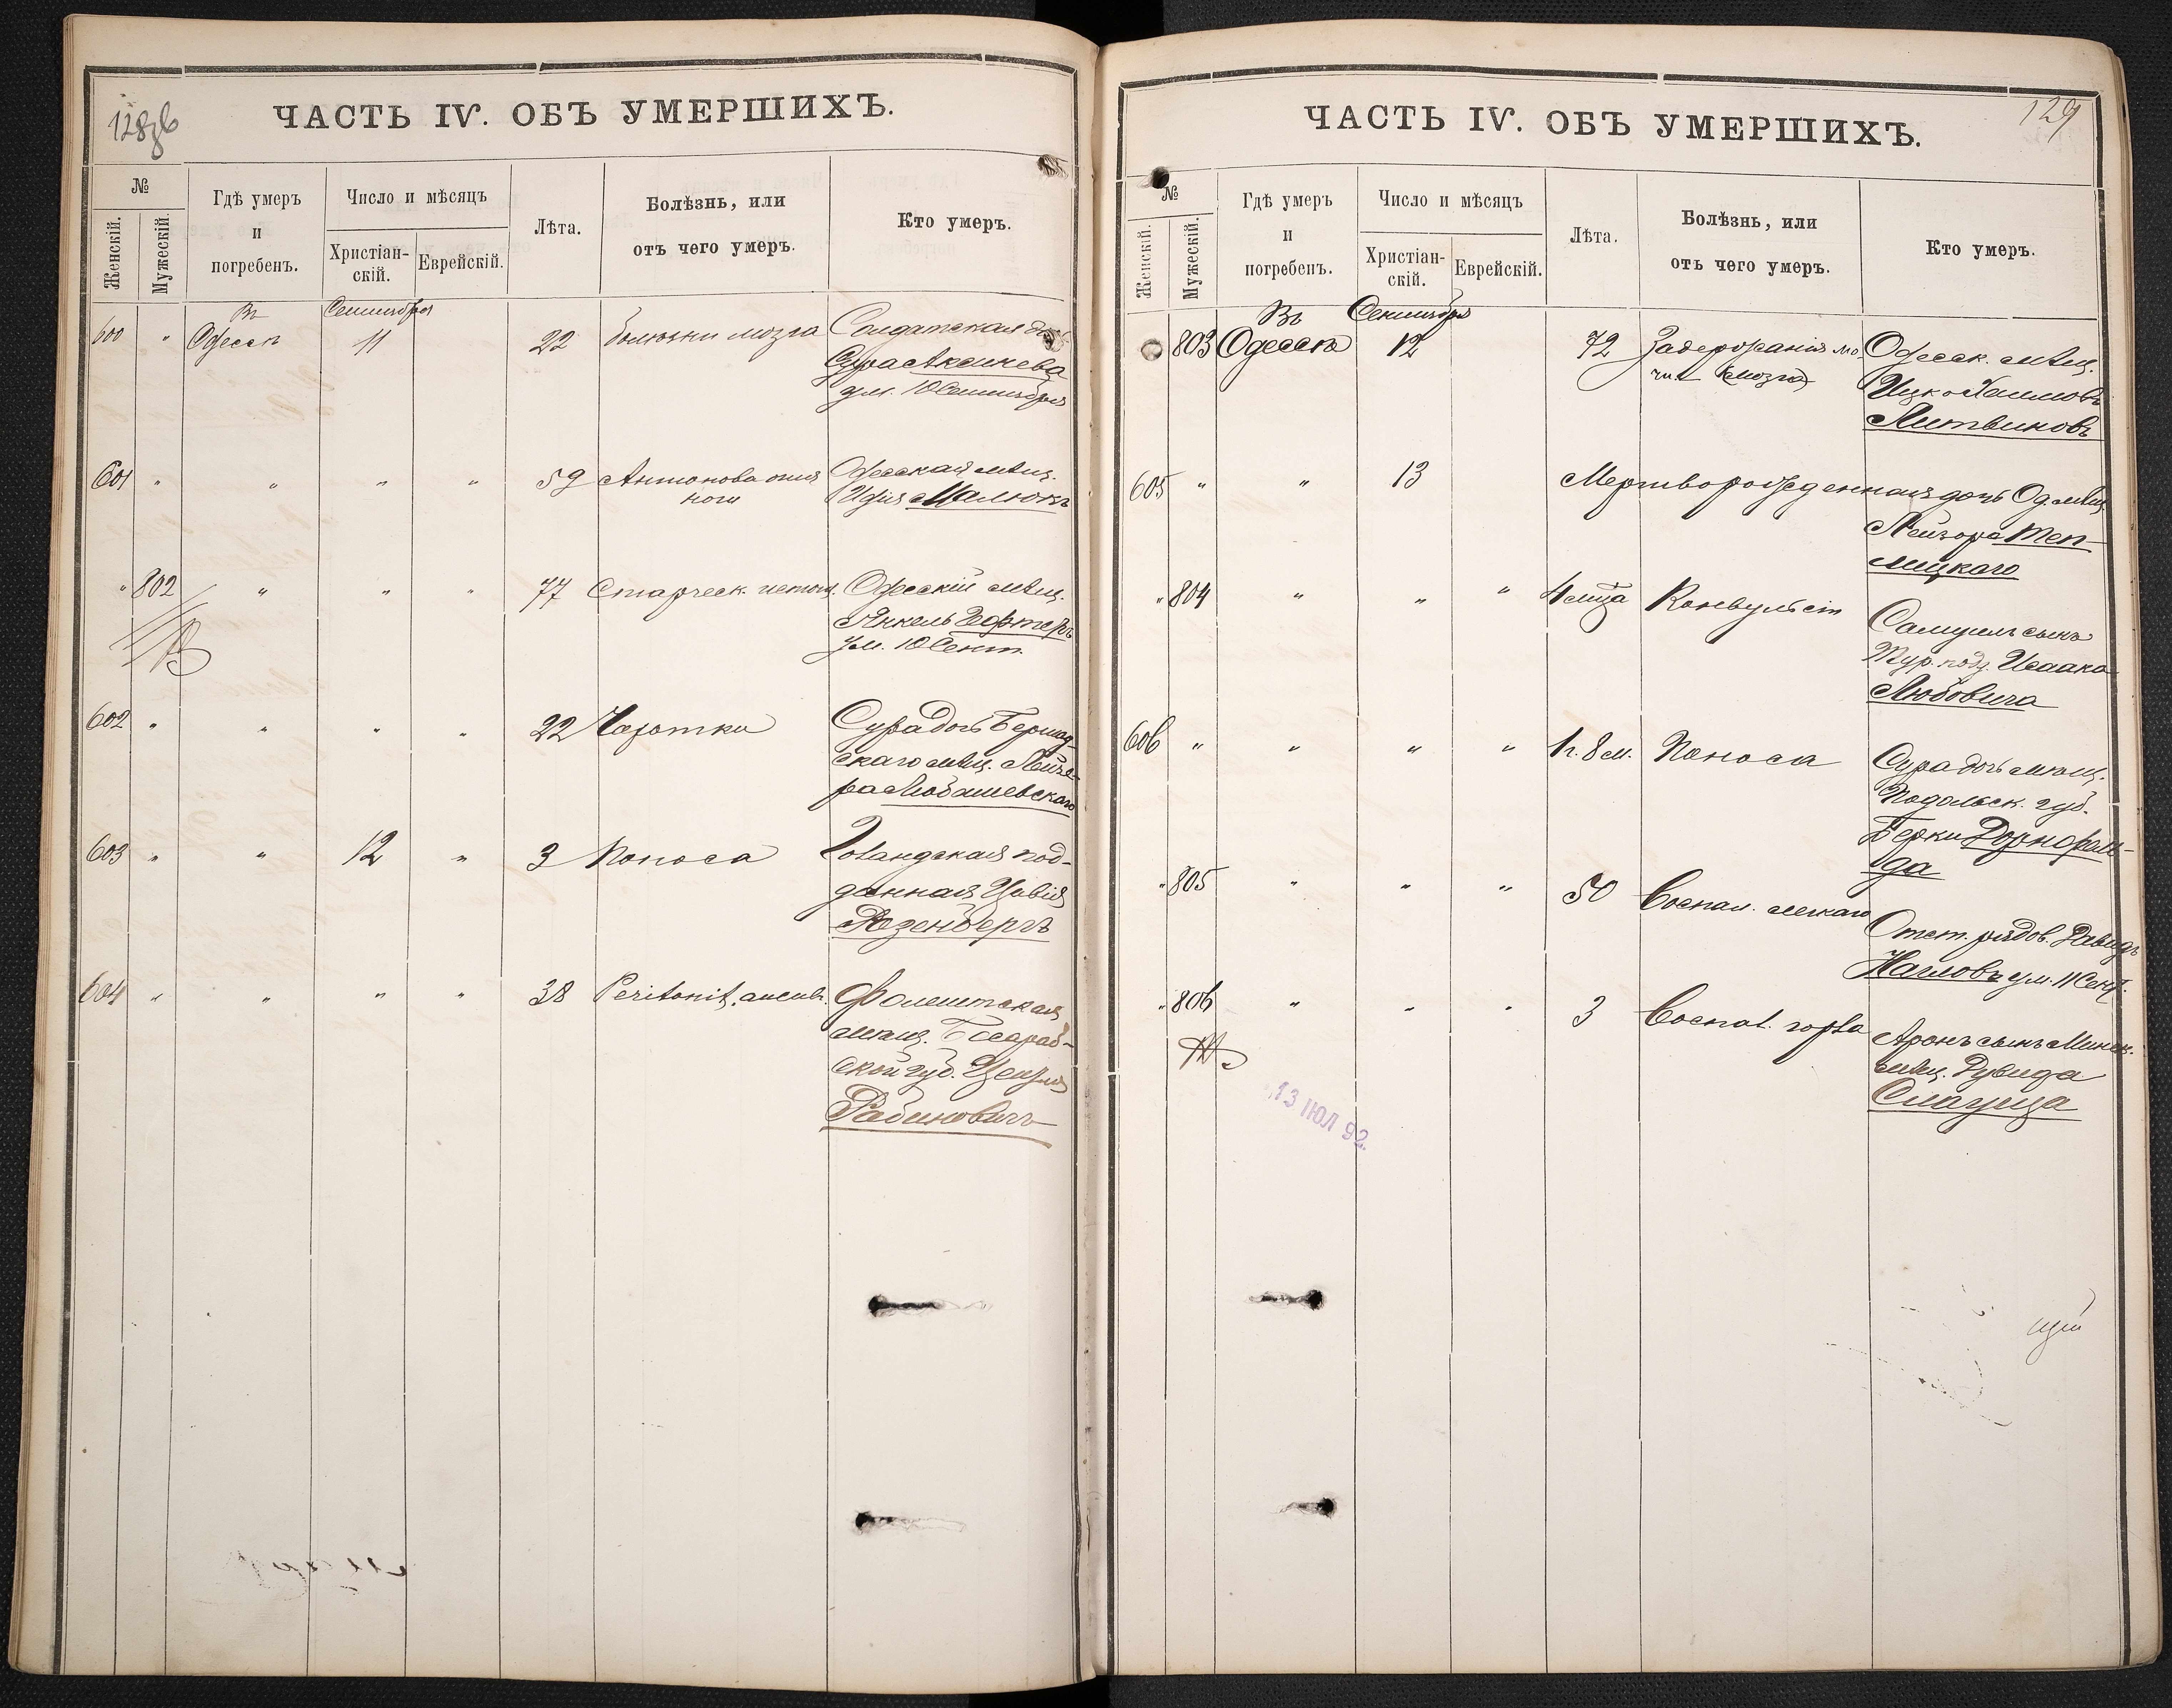 ЧАСТЬ IV. ОБЪ УМЕРШИХЪ.
№
Женскій.
Мужескій.
Гдѣ умеръ
и
погребенъ.
Число и мѣсяцъ
Христіан-
скій.
Еврейскій.
Лѣта.
Болѣзнь, или
отъ чего умеръ.
Кто умеръ.
600 " Въ Одессѣ Сентября 11 22 болѣзни мозга Солдатская
Сура
ум. 10 Сентября
601 " " " " 59 Антонова огня Одесская мѣщ.
ноги Малюкъ
" 802 " " " 77 Старческ. истощ. Одесскій мѣщ.
Янкель Гефтеръ
ум. 10 Сент.
602 " " " " 22 Чахотки Сура дочь Бершад-
скаго мѣщ. Лейзе-
ра Любашевскаго
603 " " 12 " 3 Поноса Голандская под-
данная Цивія
Розенбергъ
604 " " " " 38 Peritonit. Фалештская
мѣщ. Бесараб-
ской губ.
Рабиновичъ
ЧАСТЬ IV. ОБЪ УМЕРШИХЪ.
129
№
Женскій.
Мужескій.
Гдѣ умеръ
и
погребенъ.
Число и мѣсяцъ
Христіан-
скій.
Еврейскій.
Лѣта.
Болѣзнь, или
отъ чего умеръ.
Кто умеръ.
803 Въ Одессѣ Сентября 12 72 Задержанія мо- Одесск. мѣщ.
чи Ицко Хаимовъ
Литвиновъ
605 " " 13 Мертворожденная дочь Од. мѣщ.
Лейзора Теп-
лицкаго
" 804 " " " 4 мца Конвульсіи Самуилъ сынъ
Тур. подд. Исаака
Любовича
606 " " " " 1 г. 8 м. Поноса Сура дочь мѣщ.
Подольск. губ.
Берки Дорнфель-
да
" 805 " " " 50 Воспал. легкаго Отст. рядов. Давидъ
ум. 11 Сент.
" 806 " " " 3 Воспал. горла Аронъ сынъ Минск.
мѣщ. Дувида
13 ІЮЛ 92.